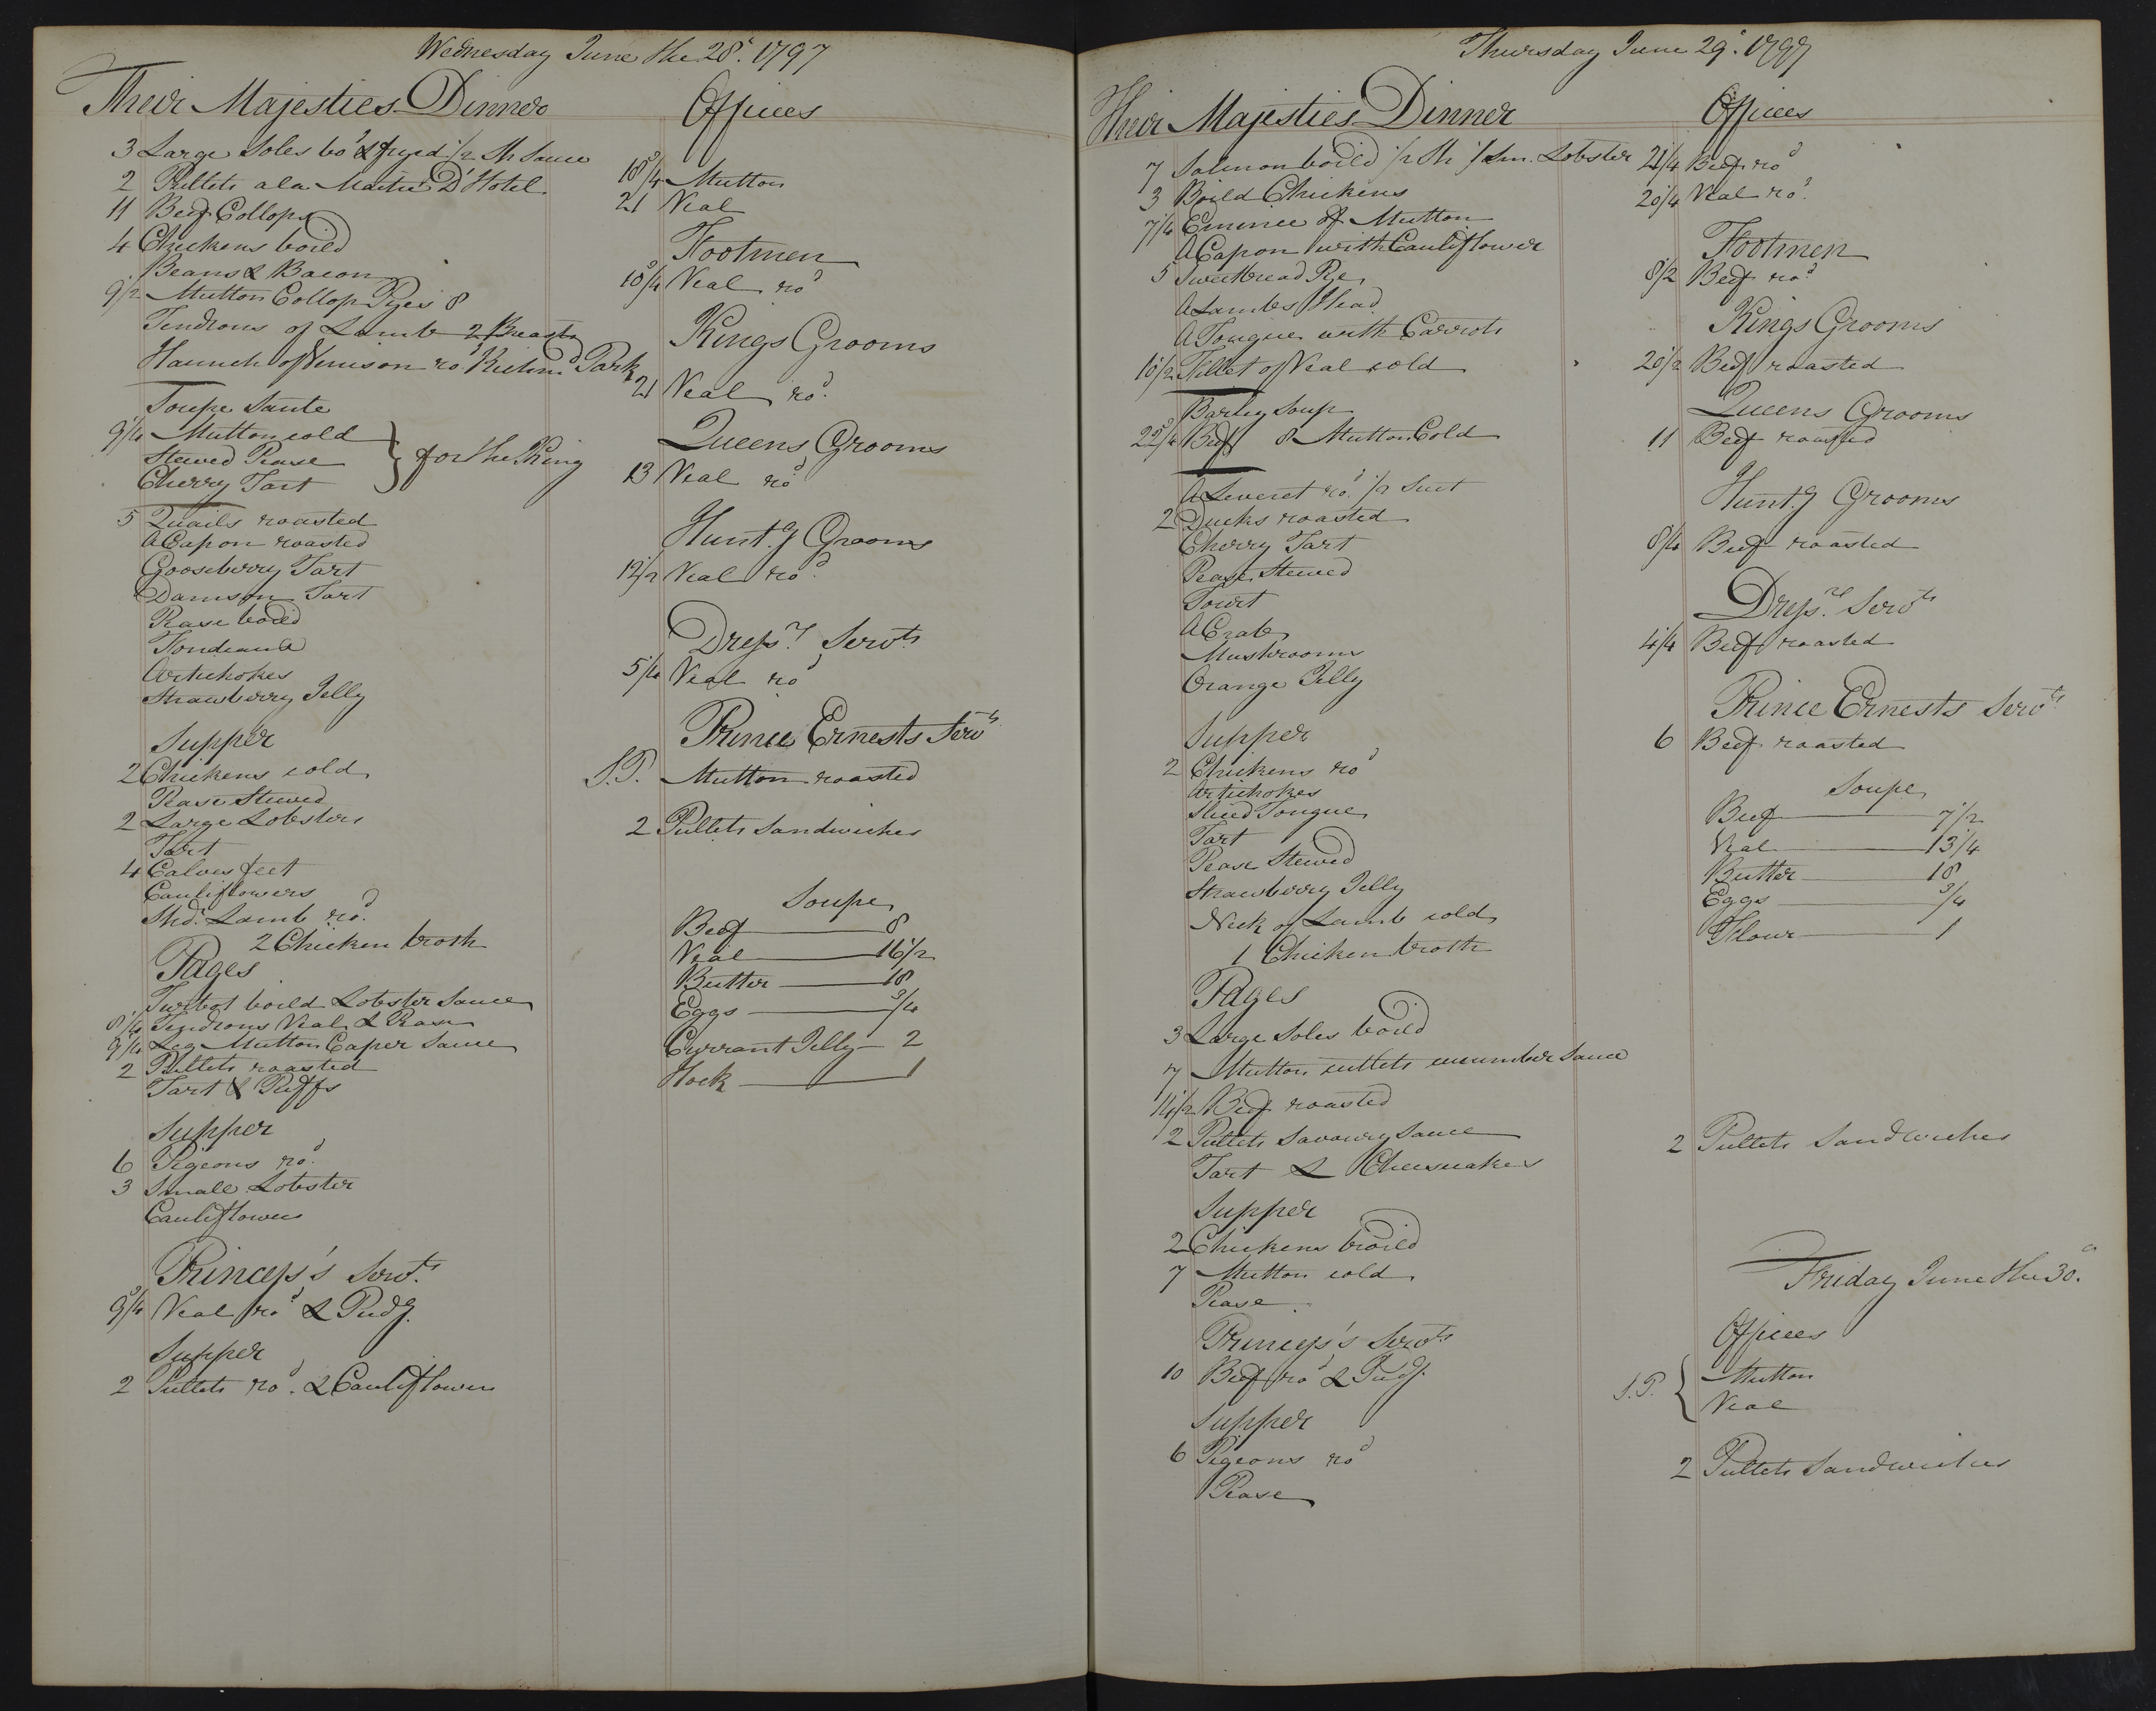 Wednesday June the 28th. 1797
Their Majesties Dinner
3 Large Soles bod. & fryed 1/2 Sh Sauce
2 Pullets a la Maitre D'Hotel
11 Beef Collops
4 Chickens boild
Beans & Bacon
9 1/2 Mutton Collop Pyes 8
Tendrons of Lamb 2 Breasts
Haunch of Venison rod. Richmd Park
Soupe Sante
9 1/4 Mutton cold
Stewed Pease
Cherry Tart
} for the King
5 Quails roasted
A Capon roasted
Gooseberry Tart
Damson Tart
Pease boild
Artichokes
Strawberry Jelly
Supper
2 Chickens cold
Pease Stewed
2 Large Lobsters
Tart
4 Calves feet
Cauliflowers
Shdr. Lamb rod.
2 Chicken broth
Pages
Turbot boild Lobster Sauce
8 1/4 Tendrons Veal & Pease
9 1/4 Leg Mutton Caper Sauce
2 Pullets roasted
Tart & Puffs
Supper
6 Pigeons rod.
3 Small Lobster
Cauliflowers
Princess's Servts.
9 3/4 Veal rod & Pudg.
Supper
2 Pullets rod. & Cauliflowers
Offices
18 3/4 Mutton
21 Veal
Footmen
18 3/4 Veal rod
Kings Grooms
21 Veal rod.
Queens Grooms
13 Veal rod
Huntg Grooms
12 1/2 Veal rod.
Dress.rs Servts
5 1/4 Veal rod
Prince Ernests Servts
S.P. Mutton roasted
2 Pullets Sandwiches
Soupe
Beef 8
Veal 16 1/2
Butter 18
Eggs 3/4
Currant Jelly 2
Hock 1
Thursday June 29th. 1797
Their Majesties Dinner
7 Salmon boild 1/2 Sh 1 Sm. Lobster
3 Boild Chickens
7 1/4 Emince of Mutton
A Capon with Cauliflower
5 Sweetbread Pye
A Lambs Head
A Tongue with Carrots
10 1/2 Fillet of Veal cold
Barley Soup
22 3/4 Beef 8 Mutton Cold
A Leveret rod. 1/2 Suet
2 Ducks roasted
Cherry Tart
Pease Stewed
Tourt
A Crab
Mushrooms
Orange Jelly
Supper
2 Chickens rod
Artichokes
Sliced Tongue
Tart
Pease Stewed
Strawberry Jelly
Neck of Lamb cold
1 Chicken broth
Pages
3 Large Soles boild
7 Mutton cutlets cucumber Sauce
14 1/2 Beef roasted
2 Pullets Savoury Sauce
Tart & Cheesecakes
Supper
2 Chickens broild
7 Mutton cold
Pease
Princess's Servts
10 Beef rod & Pudg.
Supper
6 Pigeons rod
Pease
Offices
21 1/4 Beef rod
20 1/4 Veal rod.
Footmen
8 1/2 Beef rod
Kings Grooms
20 1/2 Beef roasted
Queens Grooms
11 Beef roasted
Huntg Grooms
8 1/4 Beef roasted
Dress.rs Servts
4 1/4 Beef roasted
Prince Ernests Servts
6 Beef roasted
Soupe
Beef 7 1/2
Veal 13 1/4
Butter 18
Eggs 3/4
Flour 1
2 Pullets Sandwiches
Friday June the 30th.
Offices
S.P. { Mutton
Veal
2 Pullets Sandwiches